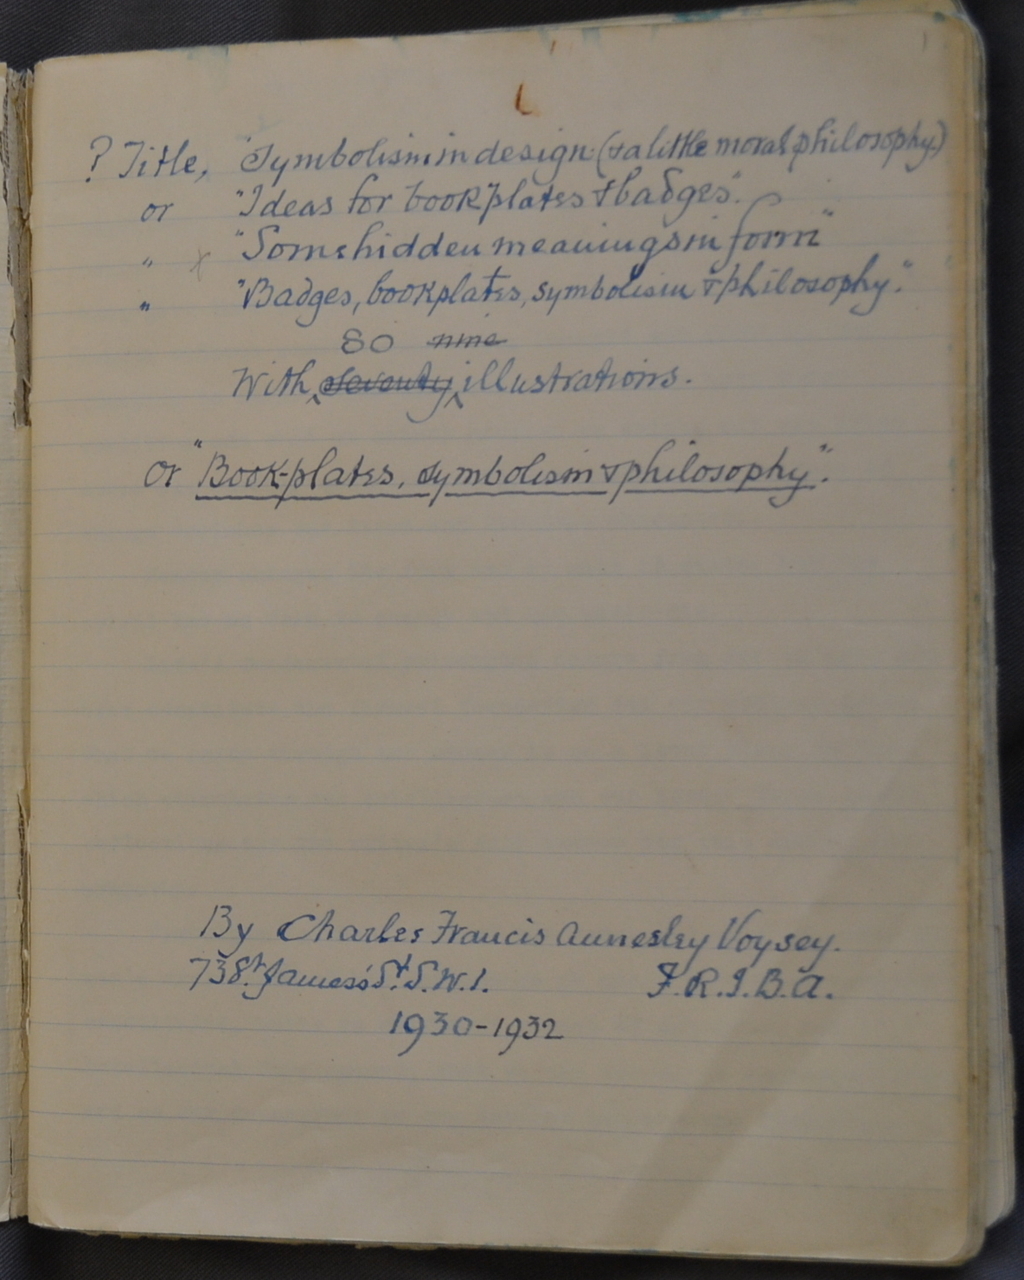 ? Title, "Symbolism in design (& a little moral philosophy)
or "Ideas for bookplates & badges".
" x "Some hidden meanings in form"
" "Badges, bookplates, symbolism & philosophy."
80 nine
With seventy illustrations.
or "Book-plates, symbolism & philosophy".
By Charles Francis Annesley Voysey.
73 St. James's St. S.W.1. F.R.I.B.A.
1930-1932